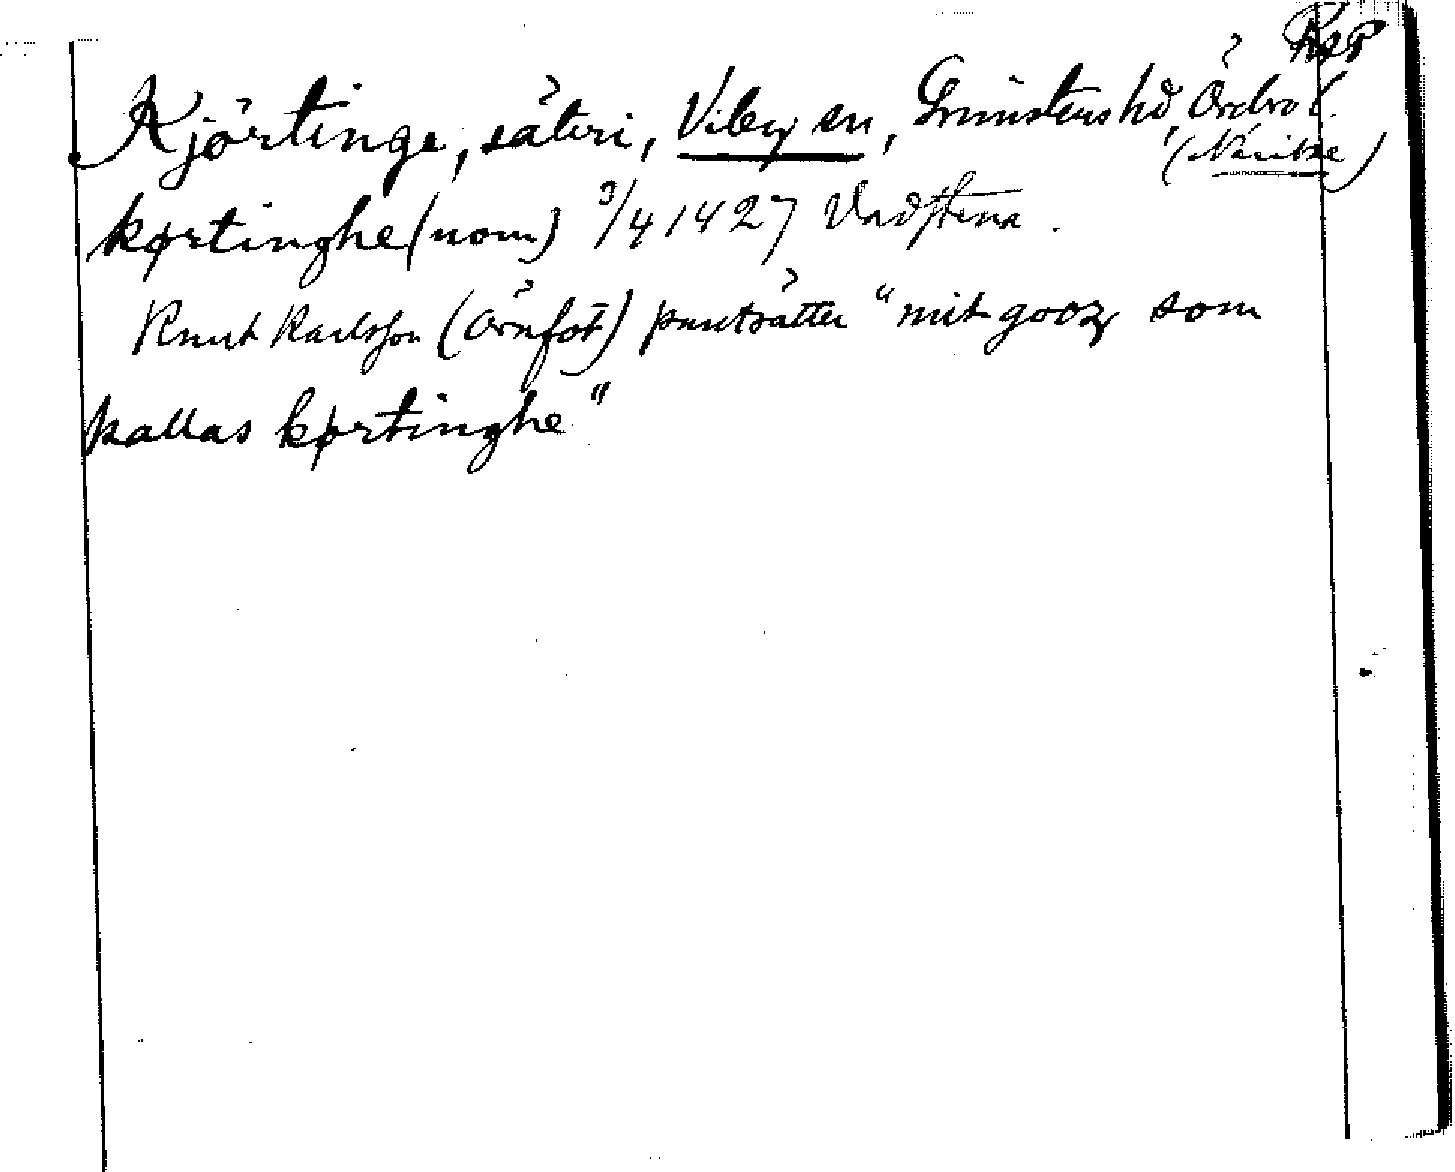 RAP
Kjörtinge, säteri, Viby sn, Grimstens hd, Örebro l.
(Närike)
kørtinghe (nom) 9/4 1427 Vadstena.
Knut Karlsson (Örnfot) pantsätter "mit gooz som
kallas kørtinghe"